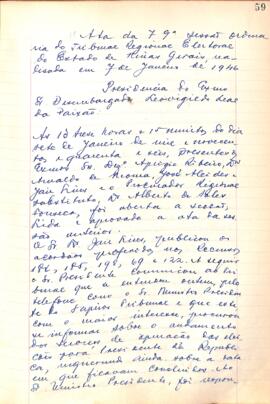 59
Ata da 79ª sessão ordina
ria do Tribunal Regional Eleitoral
do Estado de Minas Gerais, rea
lisada em 7 de Janeiro de 1946
Presidencia do Exmo
Sr Desembargador Leovigildo Leal
da Paixão.
As 13 horas e 15 minutos do dia
sete de Janeiro de mil e novecen
tos e quarenta e seis, presentes os
Exmos Srs Des. Aprigio Ribeiro, Drs
José Alcides
e o Procurador Regional
substituto, Dr Alberto da
Fonseca, foi aberta a sessão,
lida e aprovada a ata da ses
são anterior.
O Sr Dr publicou os
acordãos proferidos nos
186, 185, 198, 69 e 122. A seguir
o Sr Presidente communicou ao tri
bunal que a
telefone com o Sr Ministro Presiden
te do Superior Tribunal e que este
com o maior interesse, procurou
se informar sobre o andamento
dos serviços de apuração das elei
ções para Presidente da Republi
ca, ainda sobre a data
em que ficariam concluidos. Ao
Sr Ministro Presidente, foi respon